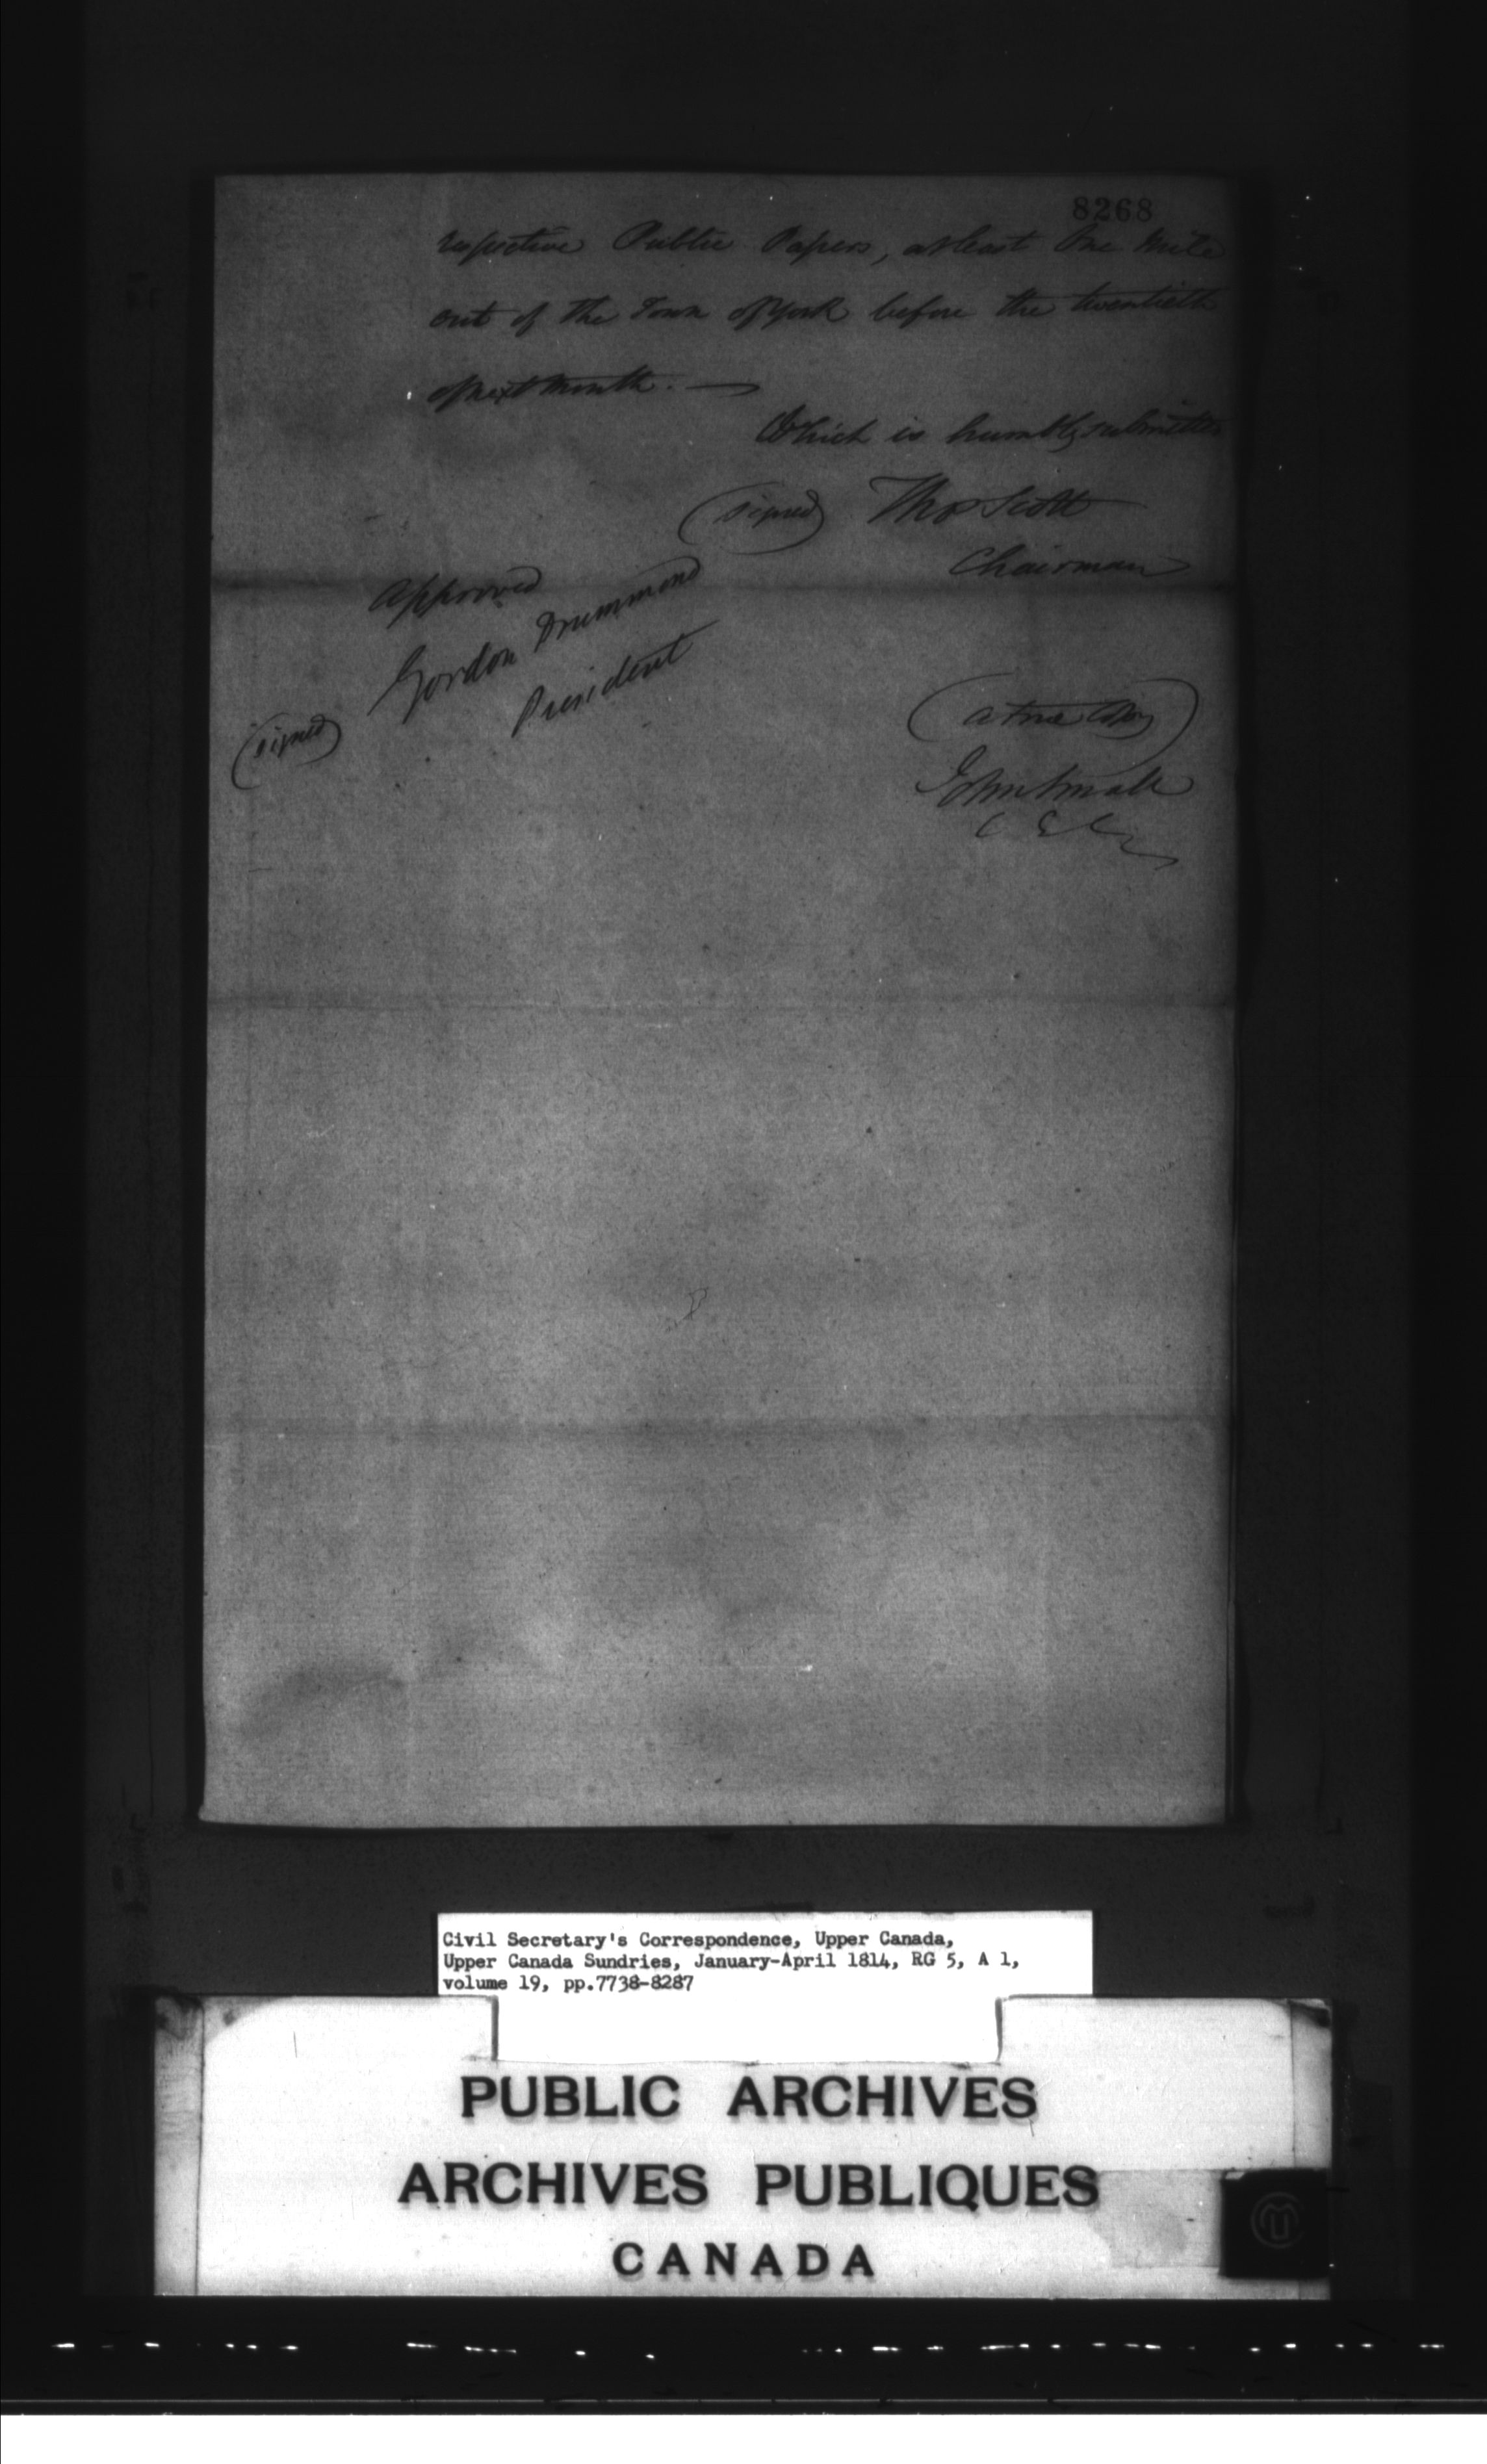 8268
respective Public Papers, at least One Mile
out of the Town of York before the twentieth
of next Month. —
Which is humbly submitted
(signed) Thos Scott
Chairman
Approved
Gordon Drummond
President
(signed)
(a true Copy)
John Small
C E C
Civil Secretary's Correspondence, Upper Canada,
Upper Canada Sundries, January-April 1814, RG 5, A 1,
volume 19, pp.7738-8287
PUBLIC ARCHIVES
ARCHIVES PUBLIQUES
CANADA